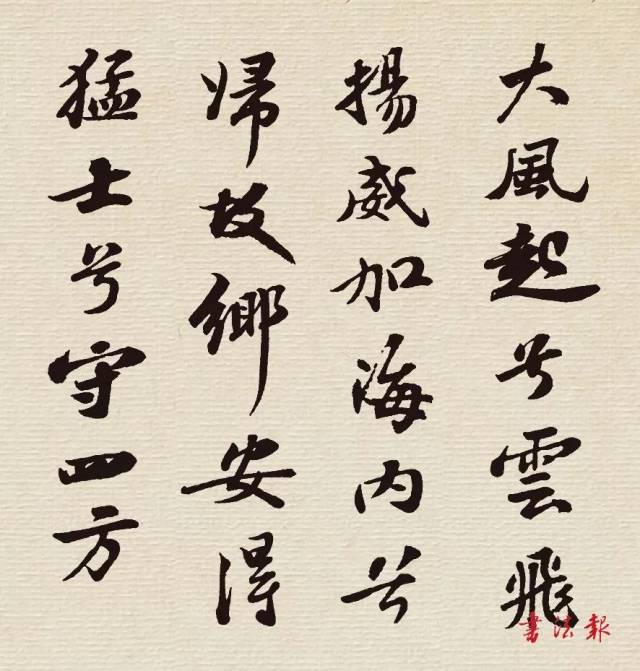 大風起兮雲飛
揚威加海内兮
歸故鄉安得
猛士兮守四方
書法報